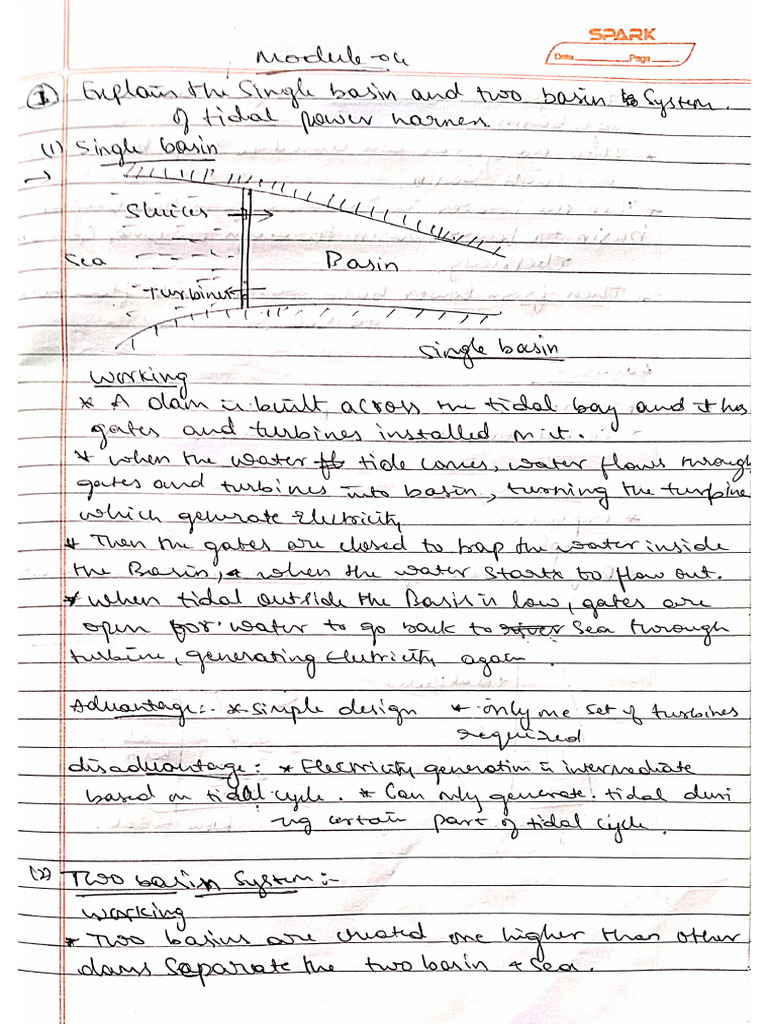 SPARK
Date Page
Module-04
① Explain the Single basin and two basin System
of tidal power harnen.
(1) Single basin
→
Sluices
Sea
Basin
Turbines
Single basin
Working
* A dam is built across the tidal bay and it has
gates and turbines installed in it.
* when the water tide comes, water flows through
gates and turbines into basin, turning the turbine
which generate Electricity
* Then the gates are closed to trap the water inside
the Basin, * when the water starts to flow out.
* when tidal outside the Basin is low, gates are
open for water to go back to river Sea through
turbine, generating Eletricity again.
Advantage:- * Simple design * only one set of turbines
required
disadvantage: * Electricity generation is intermediate
based on tidal cycle. * Can only generate tidal duri
ng certain part of tidal cycle.
(2) Two basin System:-
Working
* Two basins are created one higher than other
dams Separate the two basin & Sea.